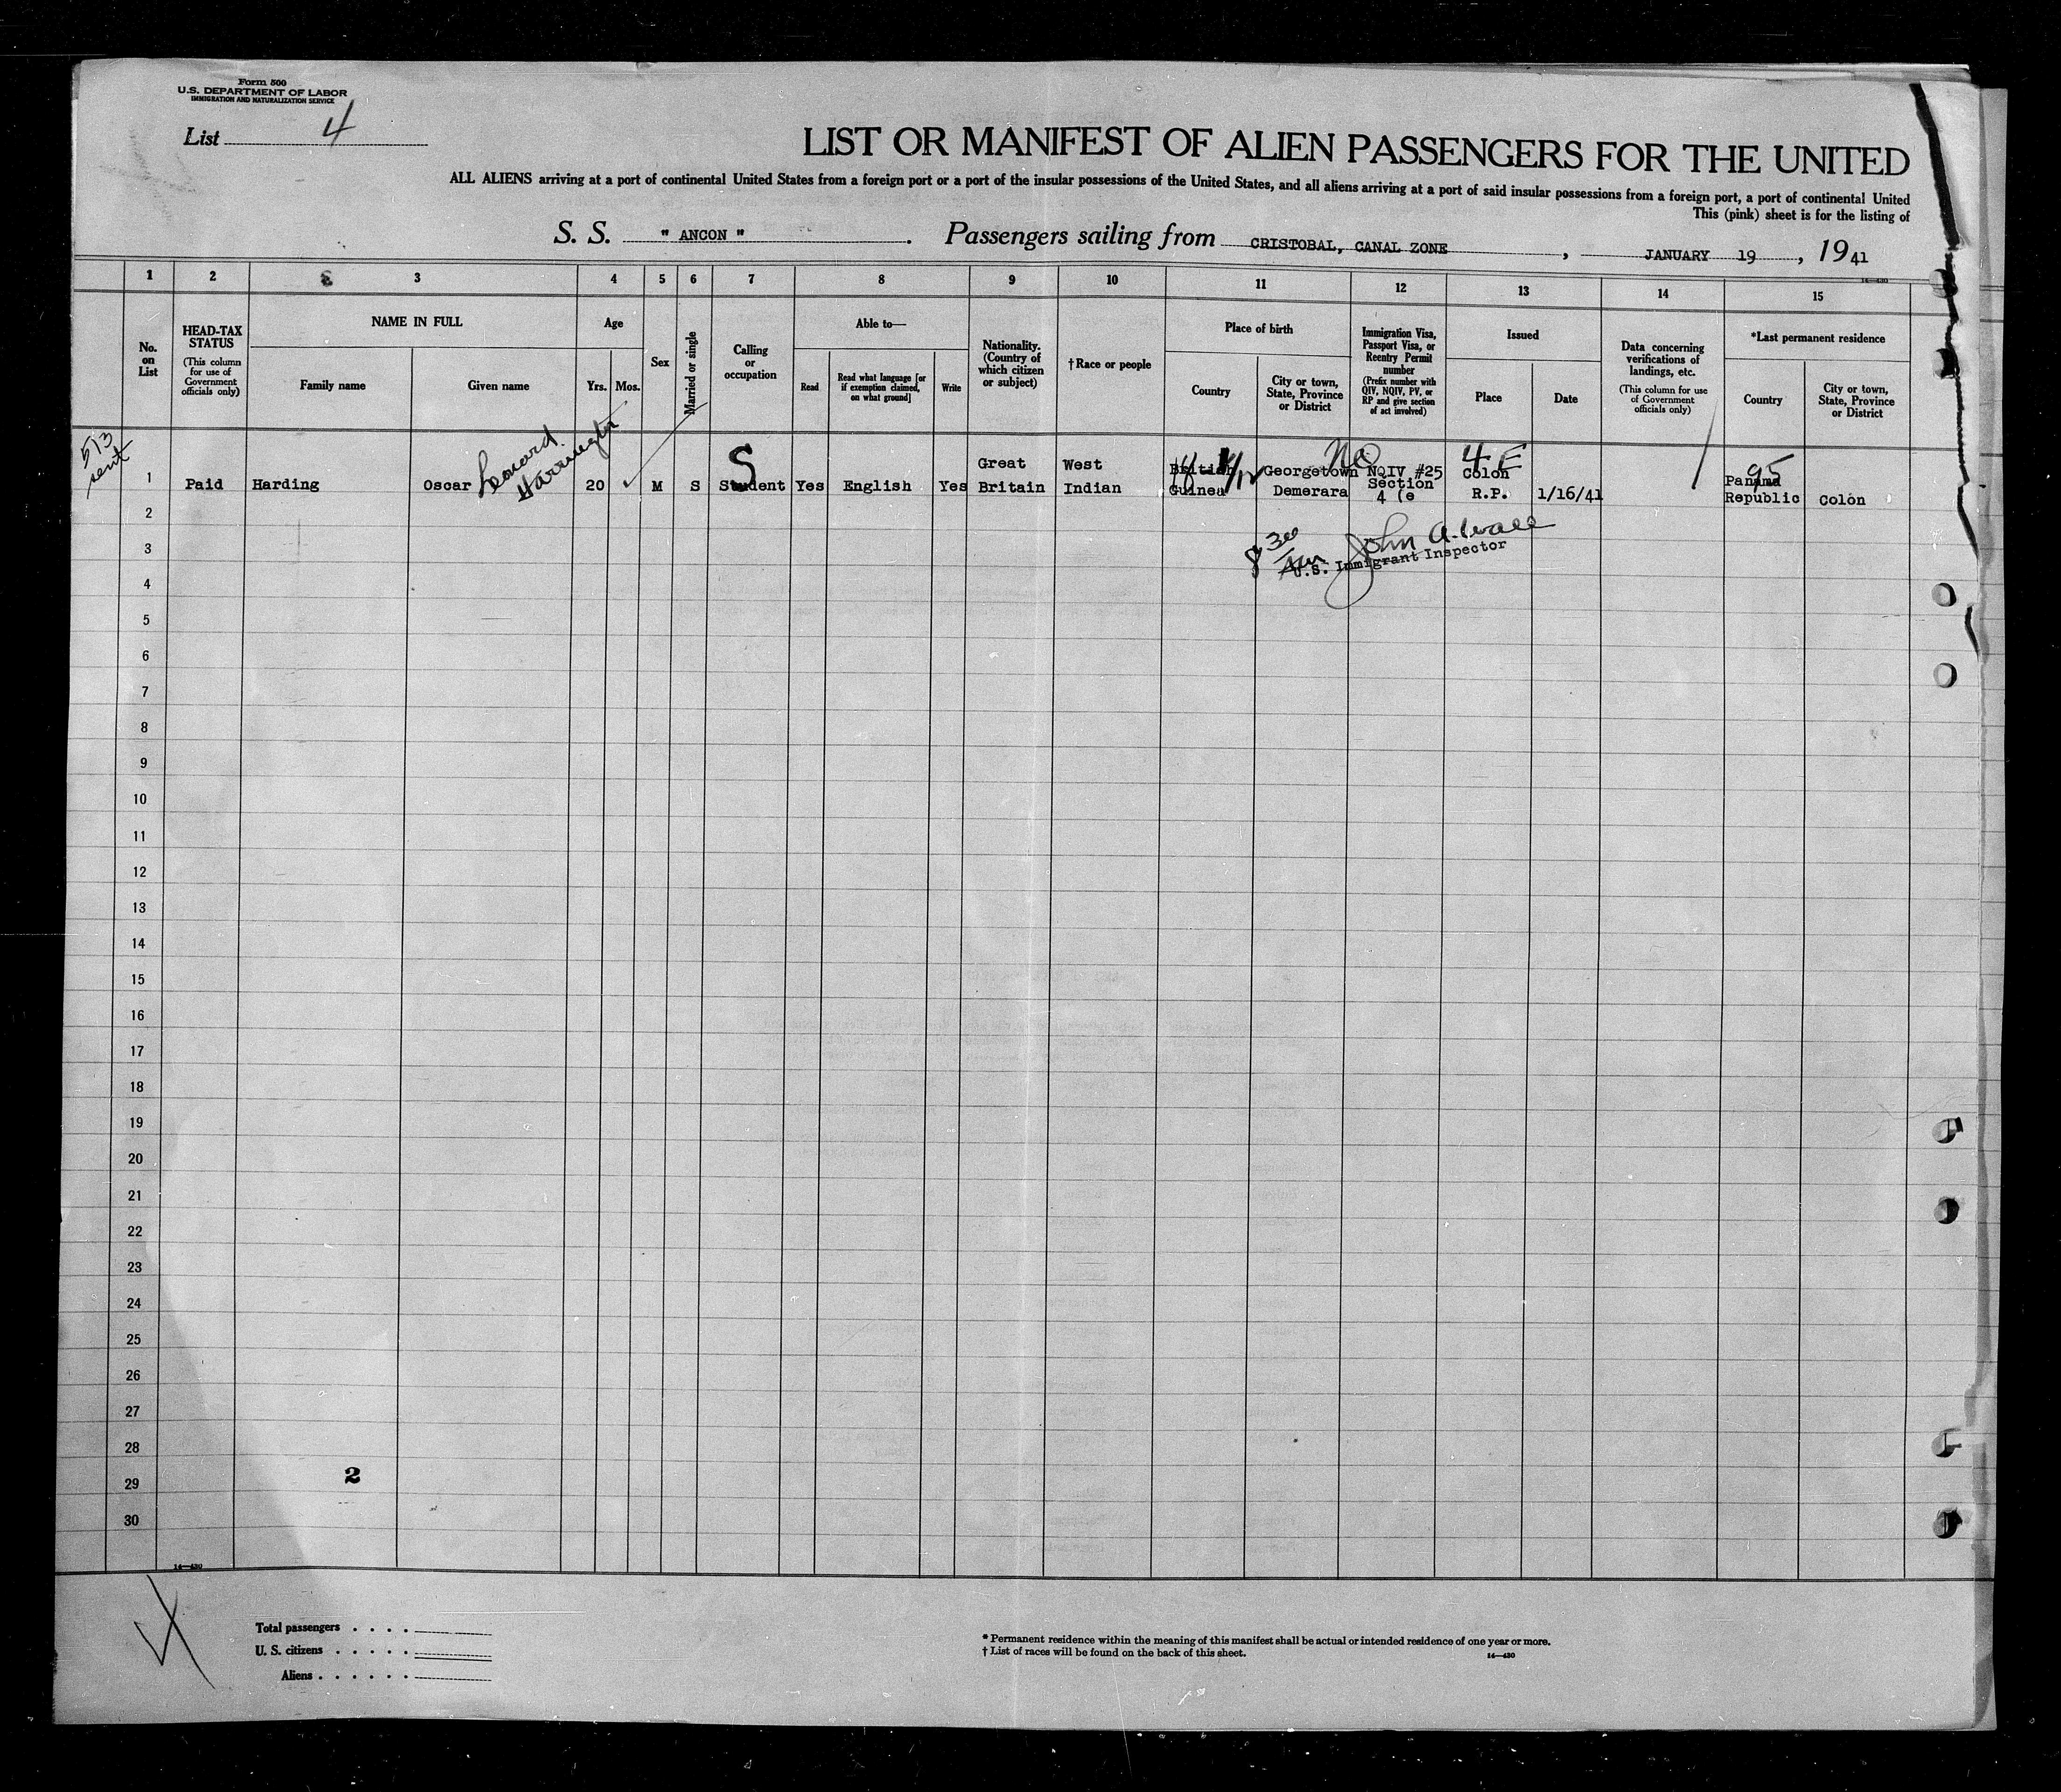 Form 500
U.S. DEPARTMENT OF LABOR
IMMIGRATION AND NATURALIZATION SERVICE
List 4
LIST OR MANIFEST OF ALIEN PASSENGERS FOR THE UNITED
ALL ALIENS arriving at a port of continental United States from a foreign port or a port of the insular possessions of the United States, and all aliens arriving at a port of said insular possessions from a foreign port, a port of continental United
This (pink) sheet is for the listing of
S. S. " ANCON ". Passengers sailing from CRISTOBAL, CANAL ZONE, JANUARY 19, 1941
14—430
1 2 3 4 5 6 7 8 9 10 11 12 13 14 15
No. on List
HEAD-TAX STATUS
(This column for use of Government officials only)
NAME IN FULL
Family name
Given name
Age
Yrs. Mos.
Sex
Married or single
Calling or occupation
Able to—
Read
Read what language [or if exemption claimed, on what ground]
Write
Nationality. (Country of which citizen or subject)
†Race or people
Place of birth
Country
City or town, State, Province or District
Immigration Visa, Passport Visa, or Reentry Permit number
(Prefix number with QIV, NQIV, PV, or RP and give section of act involved)
Issued
Place
Date
Data concerning verifications of landings, etc.
(This column for use of Government officials only)
*Last permanent residence
Country
City or town, State, Province or District
513 sent
1 Paid Harding Oscar Leonard Harrington 20 M S Student S Yes English Yes Great Britain West Indian British Guinea Georgetown Demerara No NQIV #25 Section 4 (e 4 E Colon R.P. 1/16/41 Panama Republic 95 Colón
2
8 30 Am John A. Wall
U.S. Immigrant Inspector
3
4
5
6
7
8
9
10
11
12
13
14
15
16
17
18
19
20
21
22
23
24
25
26
27
28
2
29
30
14—430
Total passengers . . . .
U. S. citizens . . . . .
Aliens . . . . . .
* Permanent residence within the meaning of this manifest shall be actual or intended residence of one year or more.
† List of races will be found on the back of this sheet.
14—430